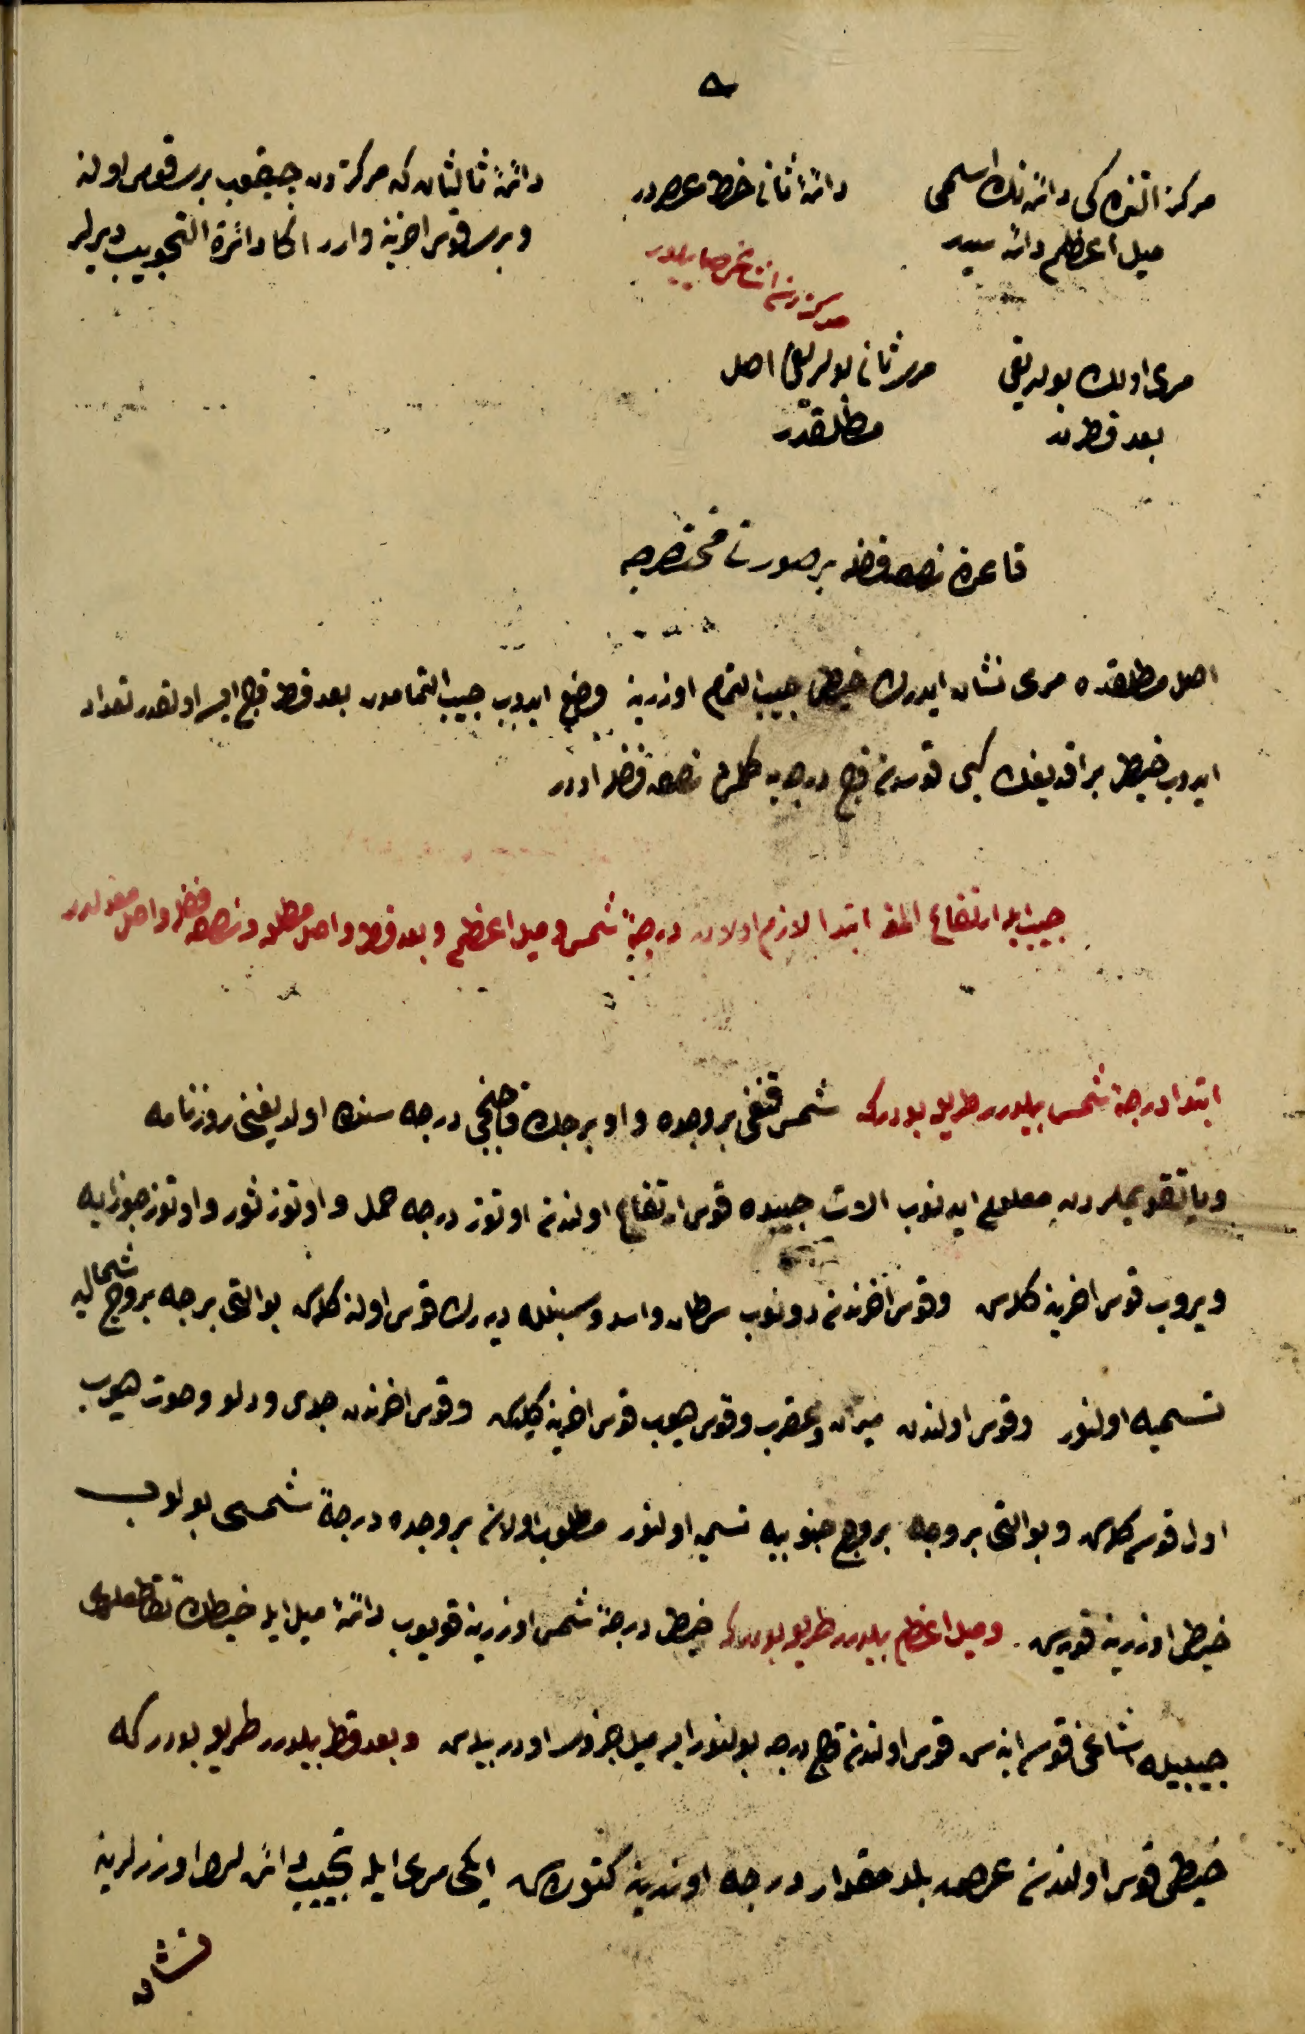 ٥
مركز التنده كی دائره‌نك اسمی
ميل اعظم دائره سیدر
دائرهٔ ثانی خط عرضدر
مركزدن اشاغی صاییلور
دائرهٔ ثالثان كه مركزدن چیقوب بری قوس اوله
و بری قوس اخرینه وارر اكا دائرة التجویب دیرلر
مری اولك بولدیغی
بعد قطردر
مری ثانی بولدیغی اصل
مطلقدر
قاعدهٔ نصف فضله بر صورت مختصرجه
اصل مطلقده مری نشان ایدرك خیطی جیب التمام اوزرینه وضع ایدوب جیب التمامدن بعد قطر قاچ ایسه اولقدر تعداد
ایدوب خیطی براقدیغك كبی قوسدن قاچ درجه‌یه كلمش نصف فضله اودر
جیب ایله ارتفاع المغه ابتدا لازم اولان درجهٔ شمس و میل اعظم و بعد قطر و اصل مطلق و نصف فضله و اصل معدلدر
ابتدا درجهٔ شمس بیلورر طریق بودركه شمس قنغی بروجده و او برجك قاچنجی درجه سنده اولدیغنی روزنامه
ویا تقویملردن معلوم ایدنوب الات جیبده قوس ارتفاع اولندن اوتوز درجه حمل و اوتوز ثور و اوتوز جوزایه
ویروب قوس اخرینه كلەسن و قوس اخرندن دونوب سرطان و اسد و سنبله دیه‌رك قوس اولنه كلەسن بو التی برجه بروج شمالیه
تسمیه اولنور و قوس اولندن میزان و عقرب و قوس صیوب قوس اخرینه كیدەسن و قوس اخرندن جدی و دلو و حوت صیوب
اول قوسه كلەسن و بو التی بروجه بروج جنوبیه تسمیه اولنور مطلوب اولان بروجده درجهٔ شمسی بولوب
خیطی اوزرینه قویه‌سن و میل اعظم بیلورر طریق بودركه خیطی درجهٔ شمس اوزرینه قویوب دائرهٔ میل ایله خیطك تقاطعندن
جیبیله اشاغی قوسه اینه‌سن قوس اولندن قاچ درجه بولنور ایسه میل جزوی اودر بیله‌سن و بعد قطر بیلورر طریق بودر كه
خیطی قوس اولندن عرض بلد مقدار درجه اوزرینه كتوره‌سن ایكی مری ایله تجییب دائره‌لری اوزرلرینه
نشان